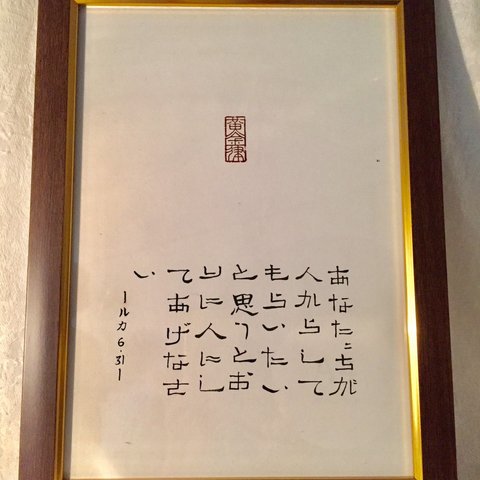 黄金律
あなたちが
人からして
もらいたい
と思うとお
りに人にし
てあげなさ
い
ールカ6・31ー